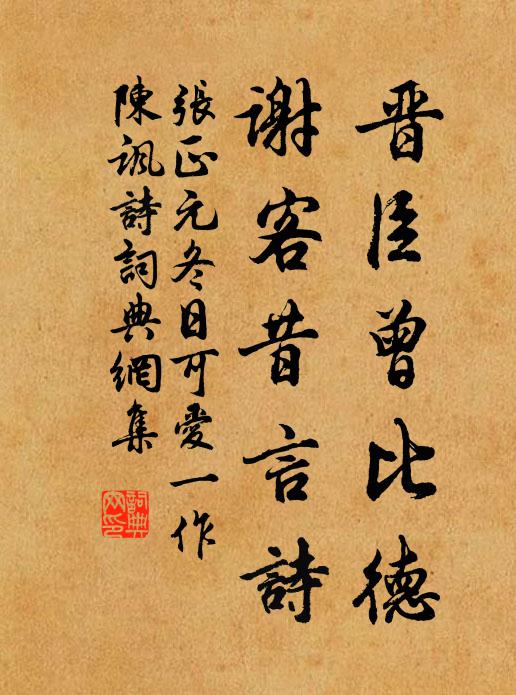 晋臣曾比德
谢客昔言詩
張正元冬日可愛一作
陳諷詩詞典網集
詞典網印